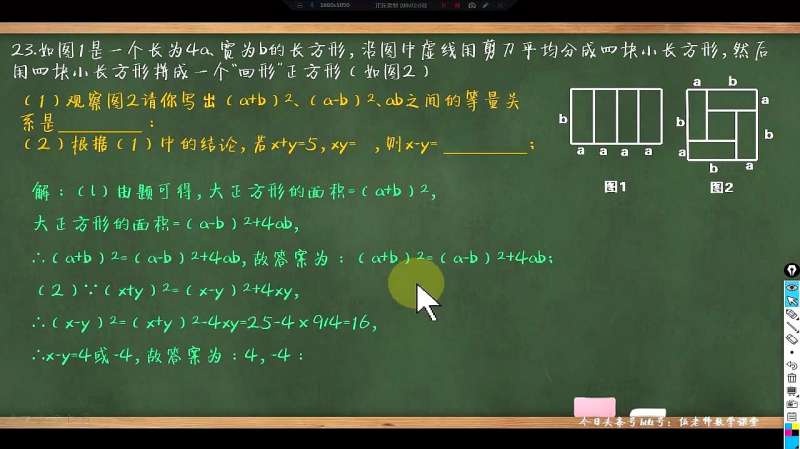 23.如图1是一个长为4a、宽为b的长方形,沿图中虚线用剪刀平均分成四块小长方形,然后
用四块小长方形拼成一个"回形"正方形(如图2)
(1)观察图2请你写出(a+b)2、(a-b)2、ab之间的等量关
系是________:
(2)根据(1)中的结论,若x+y=5,xy= ,则x-y=________;
a b
b a
b b
a a a a a b a
图1 图2
解:(1)由题可得,大正方形的面积=(a+b)2,
大正方形的面积=(a-b)2+4ab,
∴(a+b)2=(a-b)2+4ab,故答案为:(a+b)2=(a-b)2+4ab;
(2)∵(x+y)2=(x-y)2+4xy,
∴(x-y)2=(x+y)2-4xy=25-4×9/4=16,
∴x-y=4或-4,故答案为:4,-4: